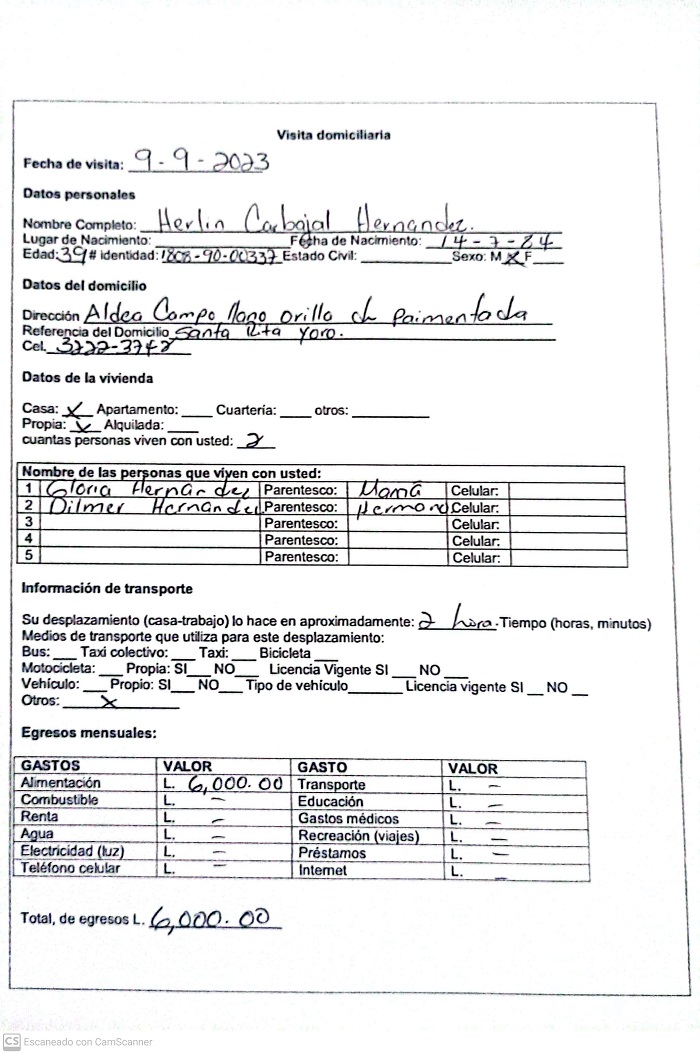 Visita domiciliaria
Fecha de visita: 9-9-2023
Datos personales
Nombre Completo: Herlin Carbajal Hernandez.
Lugar de Nacimiento: ______ Fecha de Nacimiento: 14-7-84
Edad: 39 # identidad: 1808-90-00337 Estado Civil: ______ Sexo: M X F ___
Datos del domicilio
Dirección Aldea Campo llano orilla de Paimentada
Referencia del Domicilio Santa Rita Yoro.
Cel. 3222-3742
Datos de la vivienda
Casa: X Apartamento: ____ Cuartería: ____ otros: ______
Propia: X Alquilada: ____
cuantas personas viven con usted: 2
Nombre de las personas que viven con usted:
1 Gloria Hernandez Parentesco: Mamá Celular:
2 Dilmer Hernandez Parentesco: Hermano Celular:
3 Parentesco: Celular:
4 Parentesco: Celular:
5 Parentesco: Celular:
Información de transporte
Su desplazamiento (casa-trabajo) lo hace en aproximadamente: 2 hora. Tiempo (horas, minutos)
Medios de transporte que utiliza para este desplazamiento:
Bus: ___ Taxi colectivo: ___ Taxi: ___ Bicicleta ___
Motocicleta: ___ Propia: SI___ NO___ Licencia Vigente SI ___ NO ___
Vehículo: ___ Propio: SI___ NO___ Tipo de vehículo______ Licencia vigente SI __ NO __
Otros: X
Egresos mensuales:
GASTOS VALOR GASTO VALOR
Alimentación L. 6,000.00 Transporte L. –
Combustible L. – Educación L. –
Renta L. – Gastos médicos L. –
Agua L. – Recreación (viajes) L. –
Electricidad (luz) L. – Préstamos L. –
Teléfono celular L. – Internet L. –
Total, de egresos L. 6,000.00
CS Escaneado con CamScanner